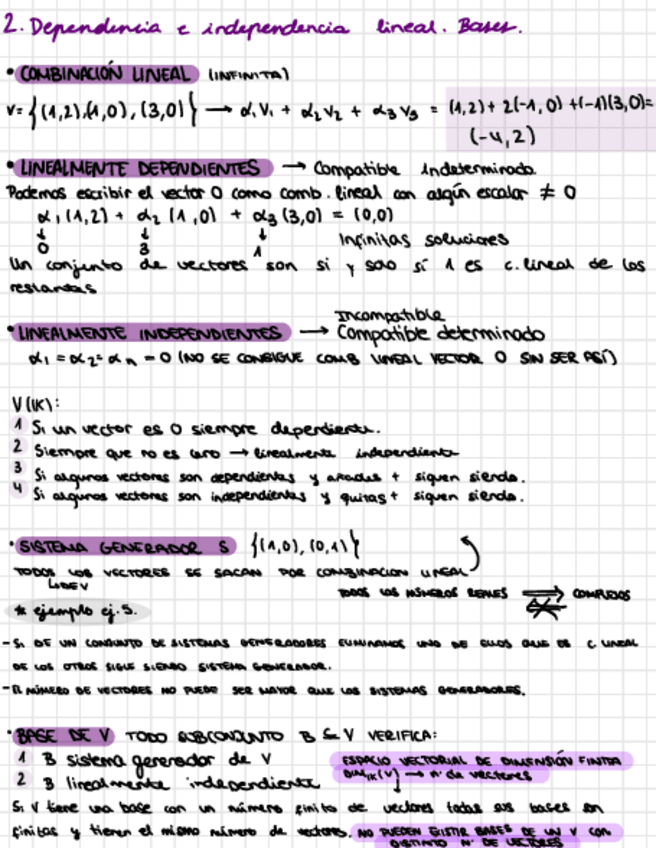 2. Dependencia e independencia lineal. Bases.
• COMBINACIÓN LINEAL (INFINITA)
V = {(1,2),(1,0),(3,0)} → α₁V₁ + α₂V₂ + α₃V₃ = (1,2) + 2(-1,0) + (-1)(3,0) =
(-4,2)
• LINEALMENTE DEPENDIENTES → Compatible Indeterminado
Podemos escribir el vector 0 como comb. lineal con algún escalar ≠ 0
α₁(1,2) + α₂(1,0) + α₃(3,0) = (0,0)
↓ ↓ ↓ Infinitas soluciones
0 3 1
Un conjunto de vectores son si y solo sí 1 es c. lineal de los
restantes
Incompatible
• LINEALMENTE INDEPENDIENTES → Compatible determinado
α₁ = α₂ = αₙ = 0 (NO SE CONSIGUE COMB LINEAL VECTOR 0 SIN SER ASÍ)
V(IK):
1 Si un vector es 0 siempre dependiente.
2 Siempre que no es cero → linealmente independiente
3 Si algunos vectores son dependientes y añades + siguen siendo.
4 Si algunos vectores son independientes y quitas + siguen siendo.
• SISTEMA GENERADOR S {(1,0),(0,1)}
TODOS LOS VECTORES SE SACAN POR COMBINACION LINEAL
↳ DE V
TODOS LOS NÚMEROS REALES ⇒ COMPLEJOS
* ejemplo ej. 5.
- Si DE UN CONJUNTO DE SISTEMAS GENERADORES ELIMINAMOS UNO DE ELLOS QUE ES C. LINEAL
DE LOS OTROS SIGUE SIENDO SISTEMA GENERADOR.
- EL NÚMERO DE VECTORES NO PUEDE SER MAYOR QUE LOS SISTEMAS GENERADORES.
• BASE DE V TODO SUBCONJUNTO B ⊆ V VERIFICA:
1 B sistema generador de V
2 B linealmente independiente
ESPACIO VECTORIAL DE DIMENSIÓN FINITA
DIM_IK(V) → nº de vectores
Si V tiene una base con un número finito de vectores todas sus bases son
finitas y tienen el mismo número de vectores. NO PUEDEN EXISTIR BASES DE UN V CON
DISTINTO Nº DE VECTORES